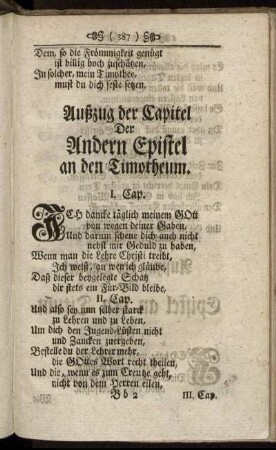 ( 387 )
Dem, so die Frömmigkeit genügt
ist billig hoch zuschätzen,
In solcher, mein Timothee,
must du dich feste setzen.
Außzug der Capitel
Der
Andern Epistel
an den Timotheum.
I. Cap.
ICH dancke täglich meinem GOtt
von wegen deiner Gaben,
Und darum scheue dich auch nicht
nebst mir Gedult zu haben,
Wenn man die Lehre Christi treibt,
Ich weiß, an wen ich gläube,
Daß dieser beygelegte Schatz
dir stets ein Für-Bild bleibe.
II. Cap.
Und also sey nun selber starck
zu Lehren und zu Leben,
Um dich den Jugend-Lüsten nicht
und Zancken zuergeben,
Bestelle du der Lehrer mehr,
die GOttes Wort recht theilen,
Und die, wenn es zum Creutze geht,
nicht von dem HErren eilen,
Bb 2 III. Cap.